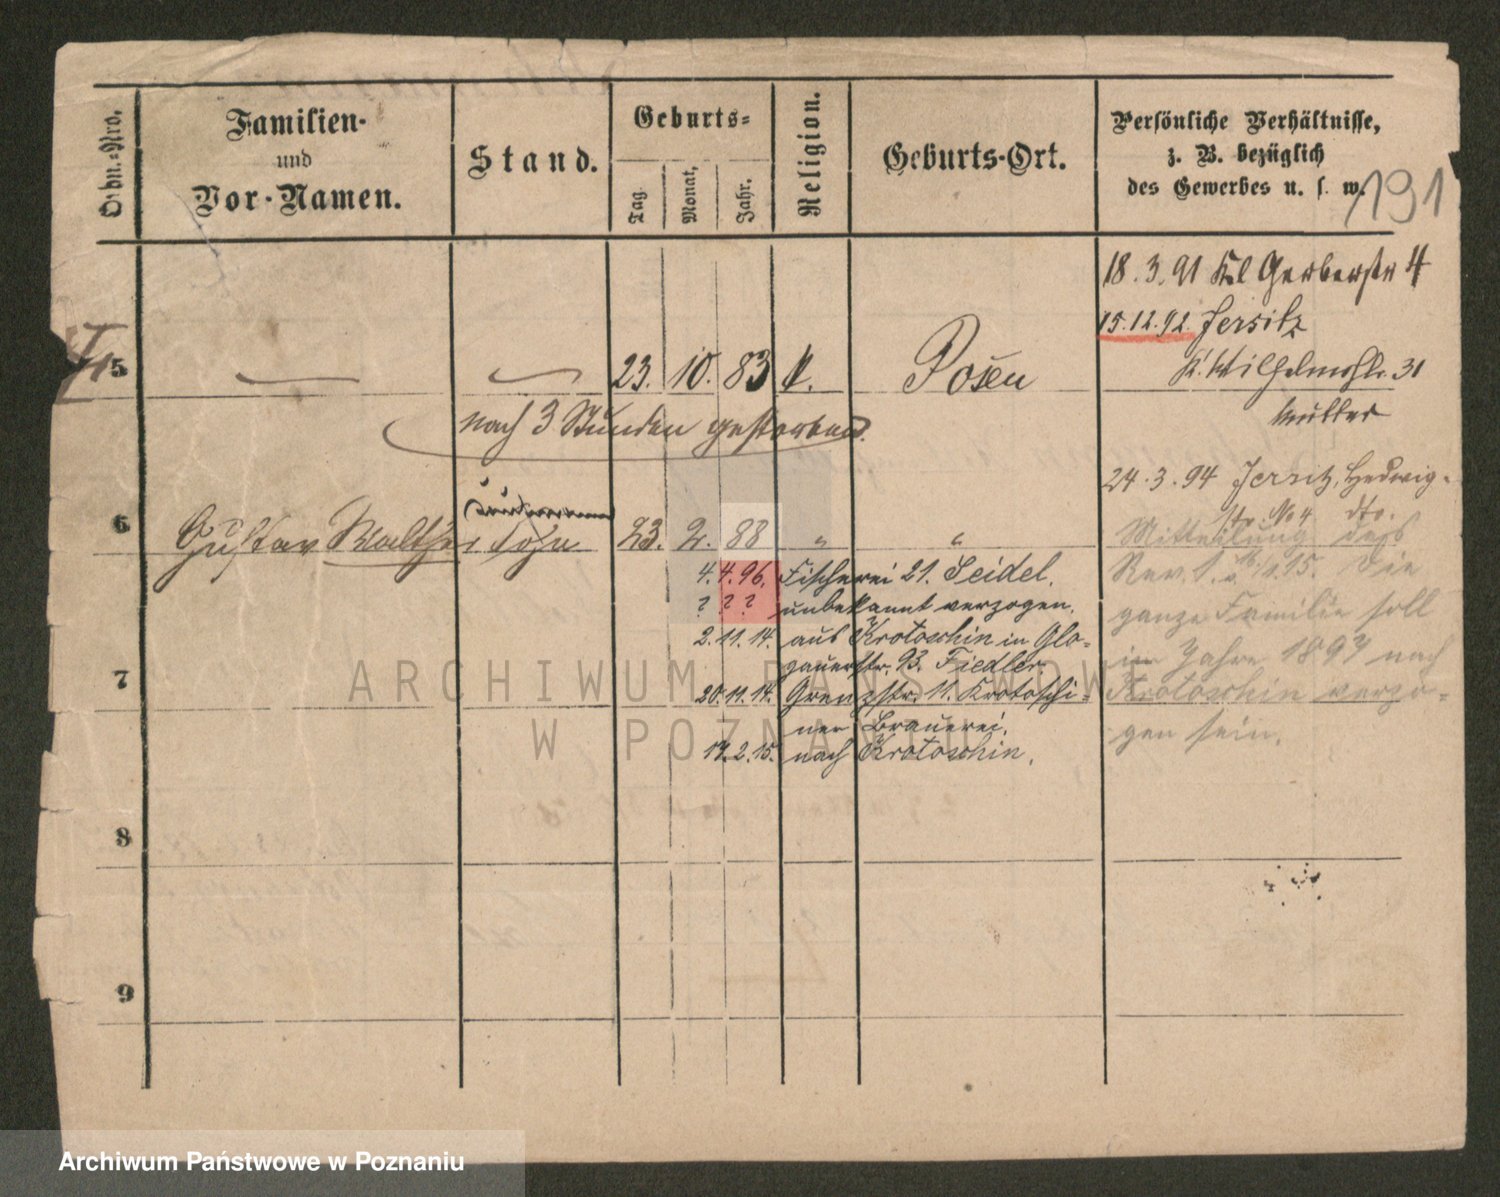 Ordn.-Nro.
Familien-
und
Vor-Namen.
Stand.
Geburts-
Tag
Monat,
Jahr.
Religion.
Geburts-Ort.
Persönliche Verhältnisse,
z. B. bezüglich
des Gewerbes u. s. w.
191
18.3.91 Kl Gerberstr 4
15.12.92. Jersitz
K. Wilhelmstr. 31
Mutter
5 23. 10. 83 k. Posen
nach 3 Stunden gestorben.
24.3.94 Jersitz, Hedwig-
str. No 4 dto.
6 Gustav Walther Sohn 23. 2. 88 " "
Mitteilung des
Rev. 1. v. 15. Die
ganze Familie soll
im Jahre 1897 nach
Krotoschin verzo-
gen sein.
4. 4. 96. Fischerei 21. Seidel.
? ? ? unbekannt verzogen.
2. 11. 14. aus Krotoschin in Glo-
gauerstr. 93. Fiedler
20. 11. 14. Grenzstr. 11. Krotoschi-
ner Brauerei.
17. 2. 15. nach Krotoschin.
7
8
9
ARCHIWUM PAŃSTWOWE
W POZNANIU
Archiwum Państwowe w Poznaniu